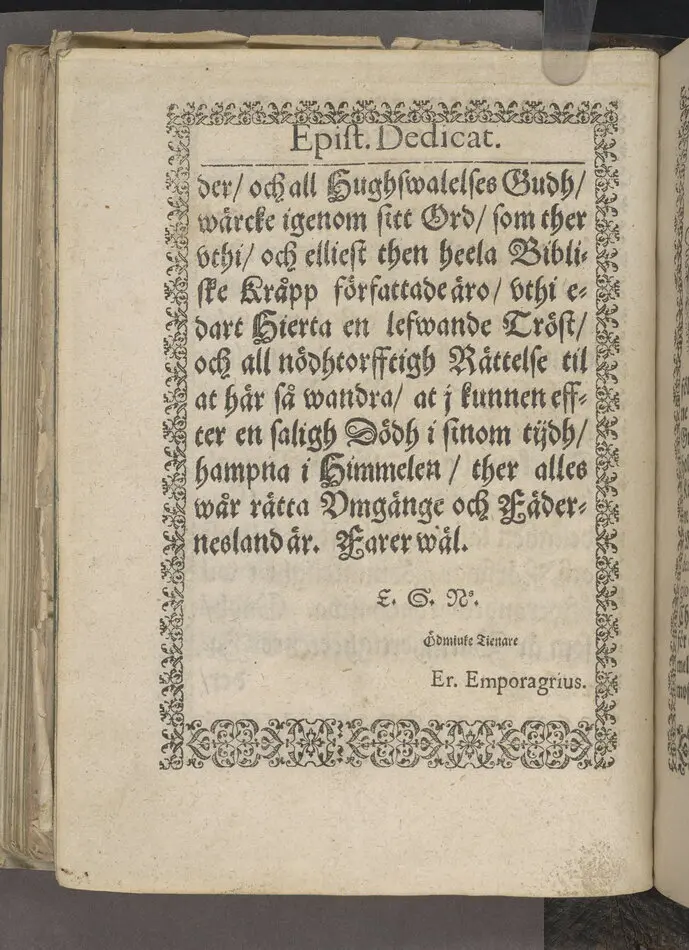 Epist. Dedicat.
der/ och all Hughswalelses Gudh/
wärcke igenom sitt Ord/ som ther
vthi/ och elliest then heela Bibli-
ske Kråpp författade äro/ vthi e-
dart Hierta en lefwande Tröst/
och all nödhtorfftigh Rättelse til
at här så wandra/ at j kunnen eff-
ter en saligh Dödh i sinom tijdh/
hampna i Himmelen / ther alles
wår rätta Vmgänge och Fäder-
nesland är. Farer wäl.
E. S. Ns.
Ödmiuke Tienare
Er. Emporagrius.